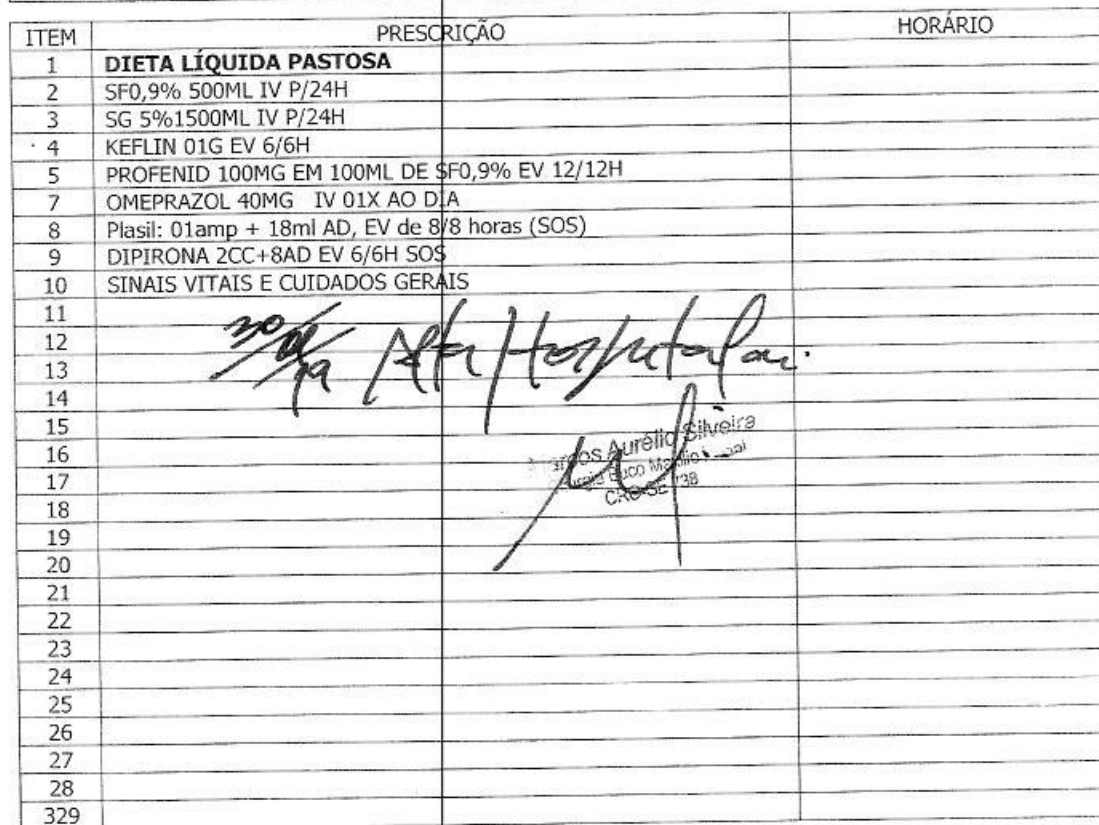 ITEM PRESCRIÇÃO HORÁRIO
1 DIETA LÍQUIDA PASTOSA
2 SF0,9% 500ML IV P/24H
3 SG 5%1500ML IV P/24H
4 KEFLIN 01G EV 6/6H
5 PROFENID 100MG EM 100ML DE SF0,9% EV 12/12H
7 OMEPRAZOL 40MG IV 01X AO DIA
8 Plasil: 01amp + 18ml AD, EV de 8/8 horas (SOS)
9 DIPIRONA 2CC+8AD EV 6/6H SOS
10 SINAIS VITAIS E CUIDADOS GERAIS
11
12
13
Alta Hospitalar
14
15
Aurélio Silveira
16
Buco
17
CRO-SE
18
19
20
21
22
23
24
25
26
27
28
329